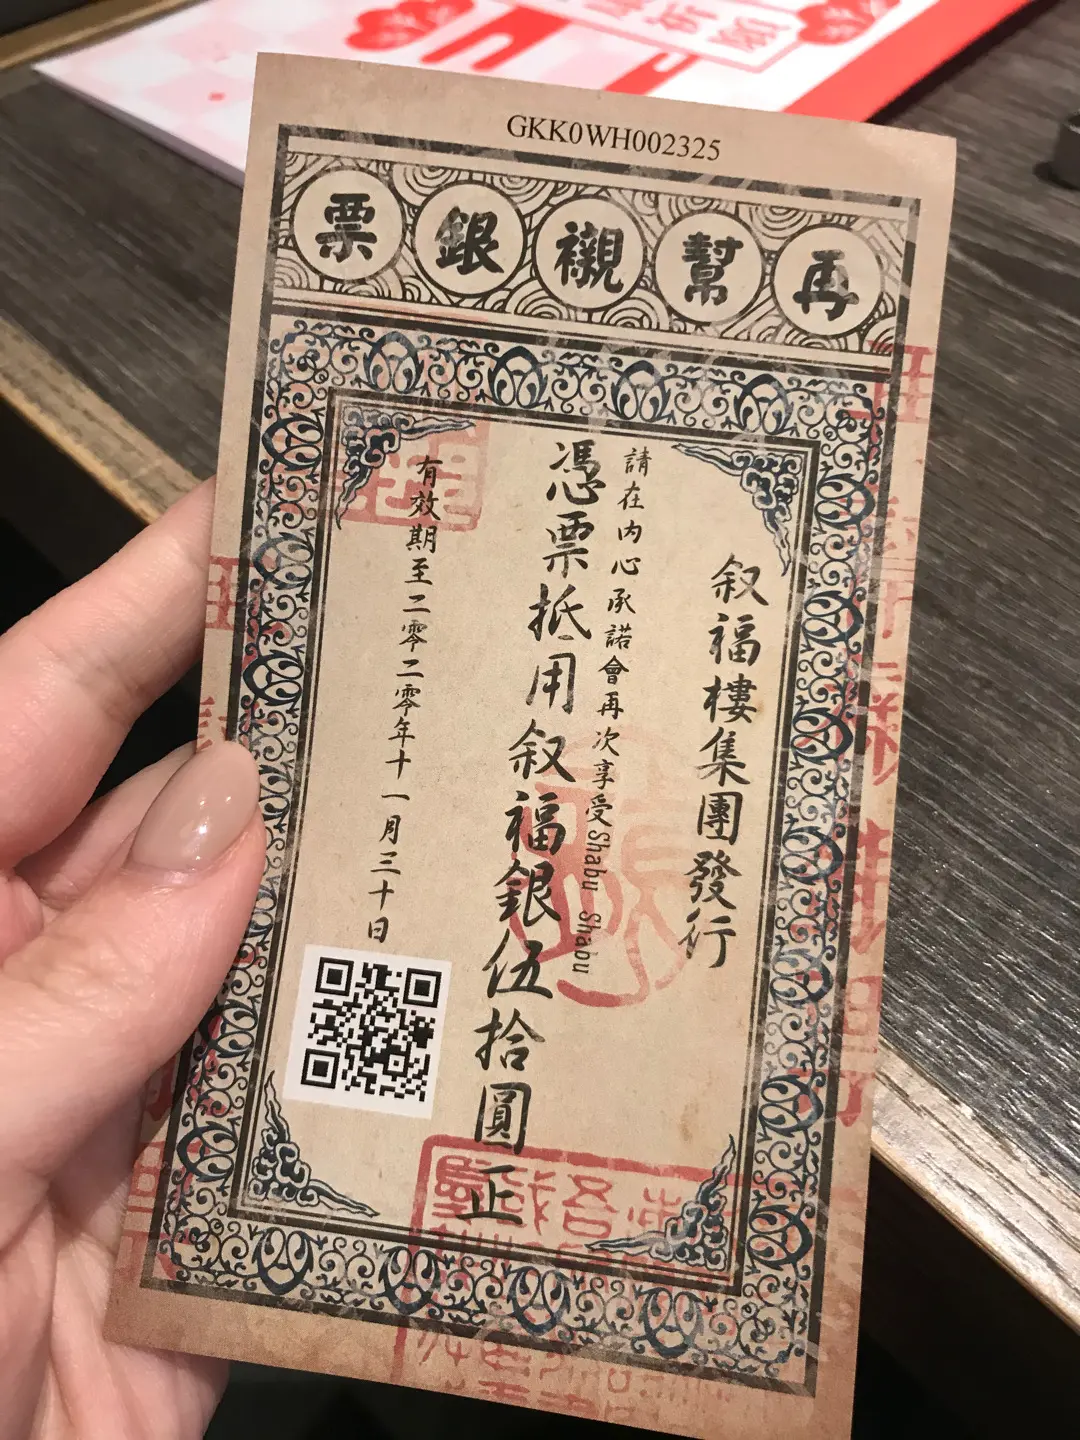 GKK0WH002325
再幫襯銀票
叙福樓集團發行
請在内心承諾會再次享受Shabu Shabu
憑票抵用叙福銀伍拾圓正
有效期至二零二零年十一月三十日